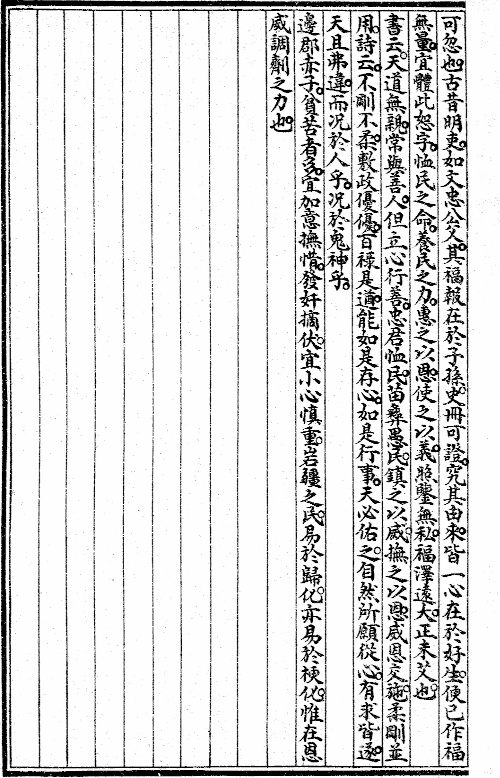 可忽也古昔明吏如文忠公父其福報在於子孫史冊可證究其由來皆一心在於好生便已作福
無量宜體此恕字恤民之命養民之力惠之以恩使之以義照鑒無私福澤遠大正未艾也
書云天道無親常與善人但立心行善忠君恤民苗彝愚民鎮之以威撫之以恩威恩交施柔剛並
用詩云不剛不柔敷政優優百祿是遒能如是存心如是行事天必佑之自然所願從心有求皆遂
天且弗違而況於人乎況於鬼神乎
邊郡赤子貧苦者多宜加意撫惜發奸摘伏宜小心慎重岩疆之民易於歸化亦易於梗化惟在恩
威調劑之力也